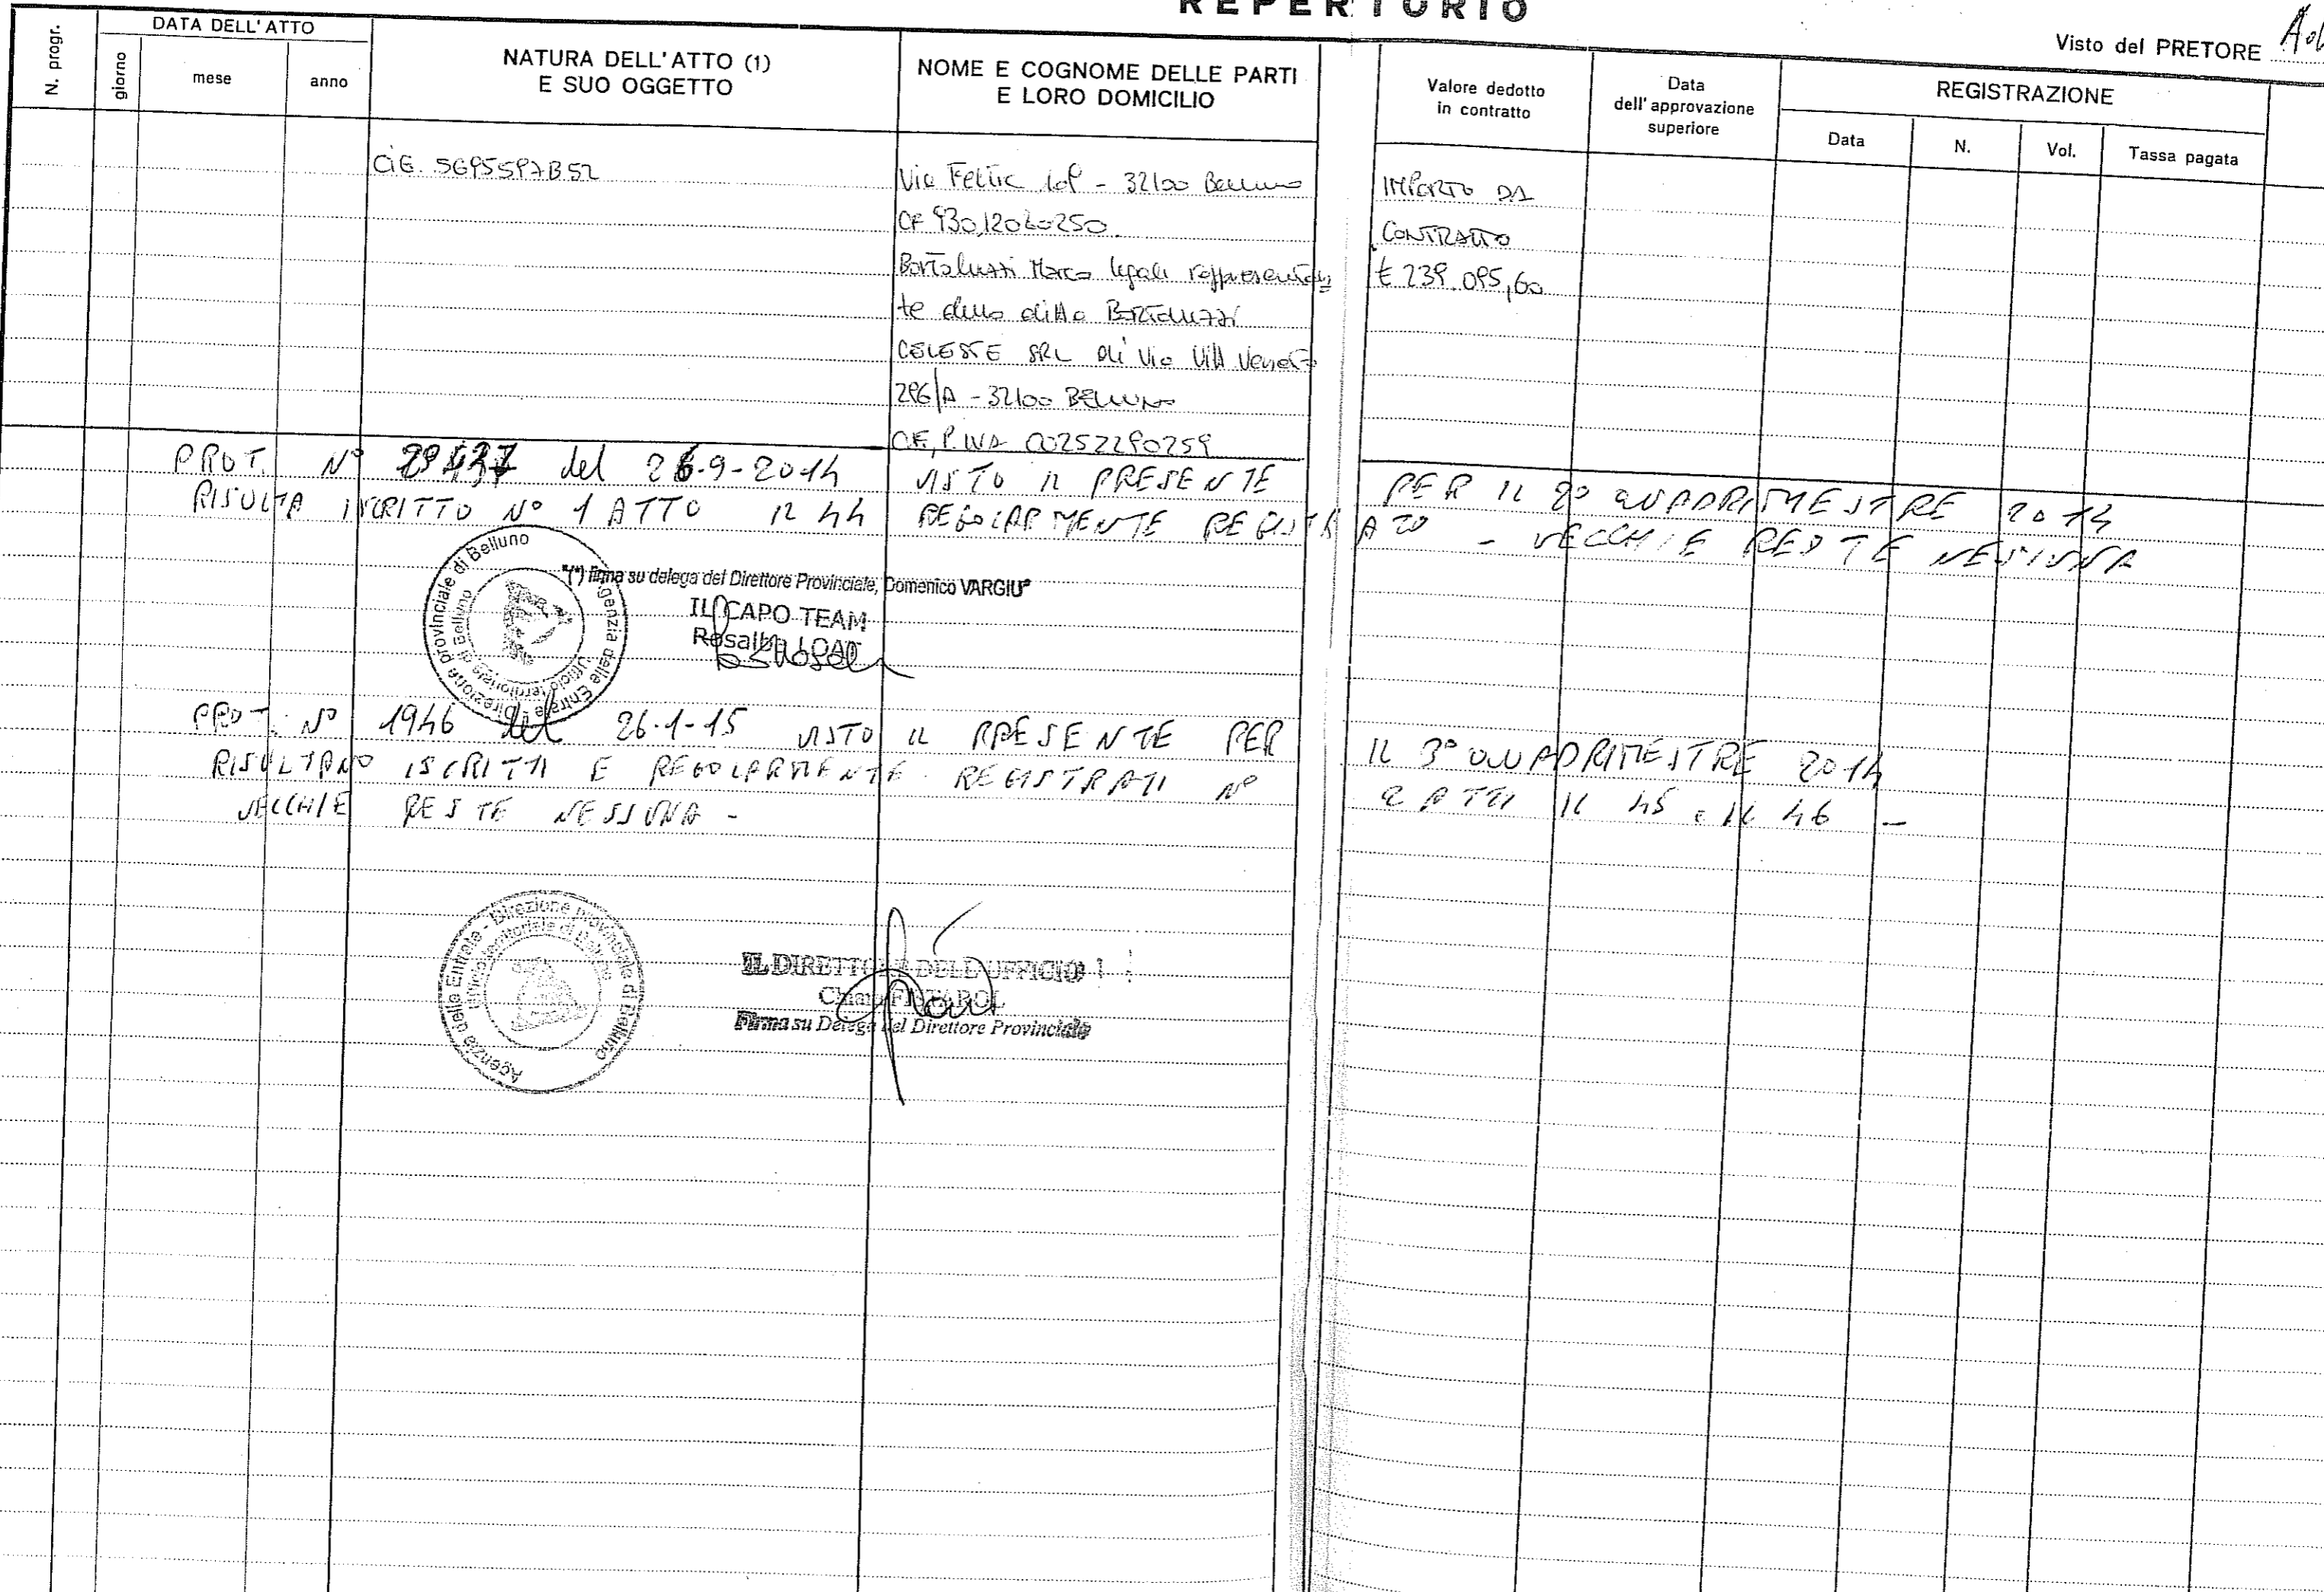 REPERTORIO
Visto del PRETORE
N. progr.
DATA DELL'ATTO
giorno
mese
anno
NATURA DELL'ATTO (1)
E SUO OGGETTO
NOME E COGNOME DELLE PARTI
E LORO DOMICILIO
Valore dedotto
in contratto
Data
dell'approvazione
superiore
REGISTRAZIONE
Data
N.
Vol.
Tassa pagata
CIG. 5695597B52
Via Feltre - 32100 Belluno
CF 93012060250
Bortoluzzi Marco legale rappresentan=
te della ditta Bortoluzzi
CELESTE SRL di Via Vitt Veneto
286/A - 32100 BELLUNO
CF, P.IVA 00252290259
IMPORTO DA
CONTRATTO
€ 239.095,60
PROT. N° 29437 del 26-9-2014 VISTO IL PRESENTE PER IL 2° QUADRIMESTRE 2014
RISULTA ISCRITTO N° 1 ATTO IL 44 REGOLARMENTE REGISTRATO - VECCHIE RESTE NESSUNA
Agenzia delle Entrate - Direzione provinciale di Belluno
Ufficio territoriale di Belluno
"(*) firma su delega del Direttore Provinciale, Domenico VARGIU"
IL CAPO TEAM
Rosalba
PROT. N° 1946 del 26-1-15 VISTO IL PRESENTE PER IL 3° QUADRIMESTRE 2014
RISULTANO ISCRITTI E REGOLARMENTE REGISTRATI N° 2 ATTI IL 45 e IL 46 -
VECCHIE RESTE NESSUNA -
Agenzia delle Entrate - Direzione provinciale di Belluno
Ufficio territoriale di Belluno
IL DIRETTORE DELL'UFFICIO
Chiara FISTAROL
Firma su Delega del Direttore Provinciale